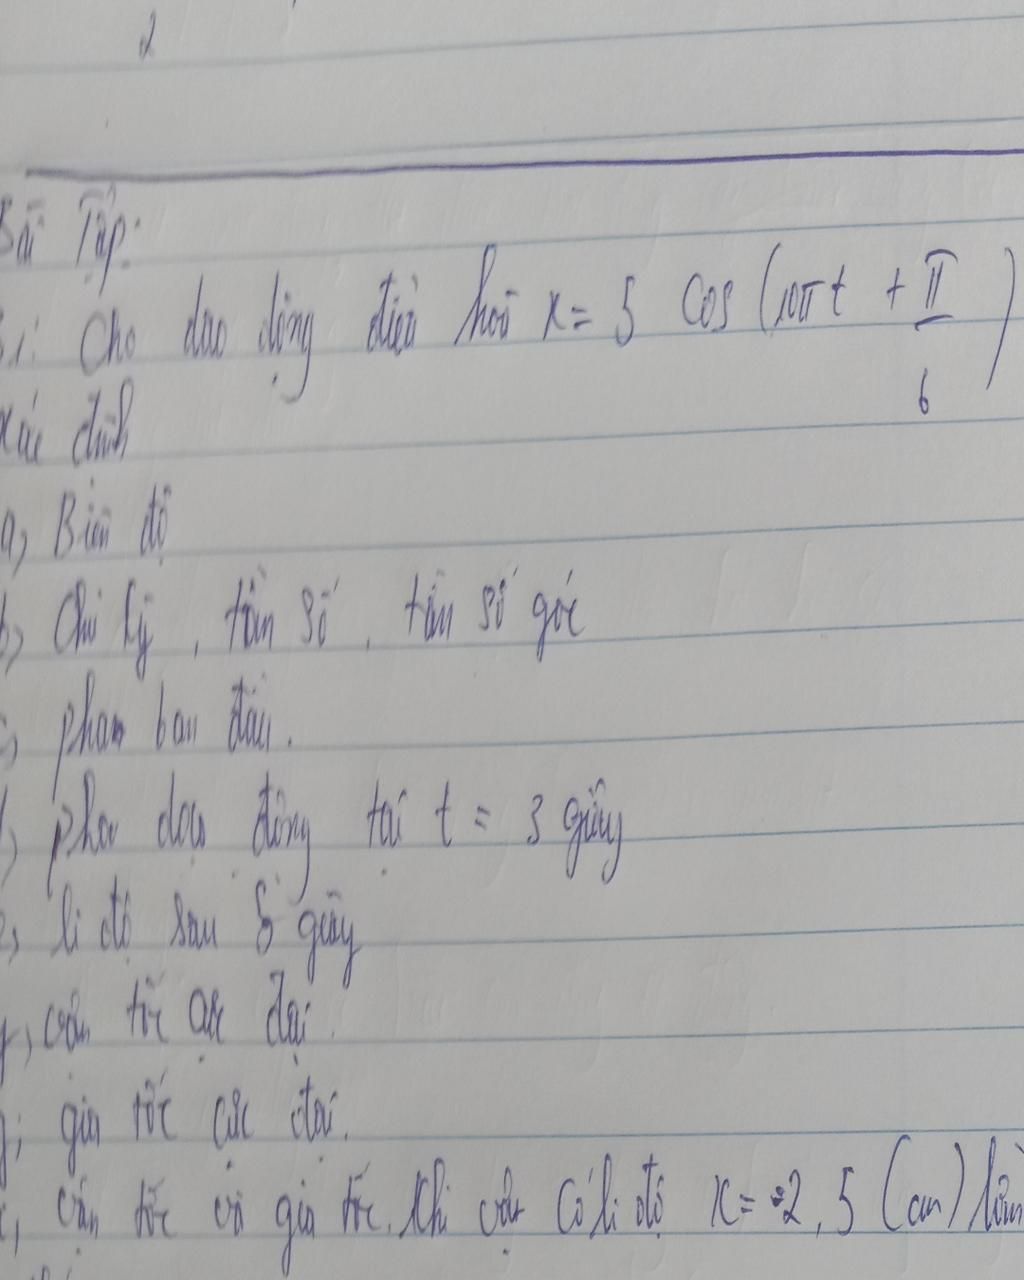 2
Bài Tập:
B1: Cho dao động điều hoà x = 5 cos (10πt + π/6)
Xác định
a, Biên độ
b, Chu kỳ, tần số, tần số góc
c, pha ban đầu.
d, pha dao động tại t = 3 giây
e, li độ sau 5 giây
f, vận tốc cực đại.
g, gia tốc cực đại.
vận tốc và gia tốc khi vật có li độ x = -2,5 (cm) lần